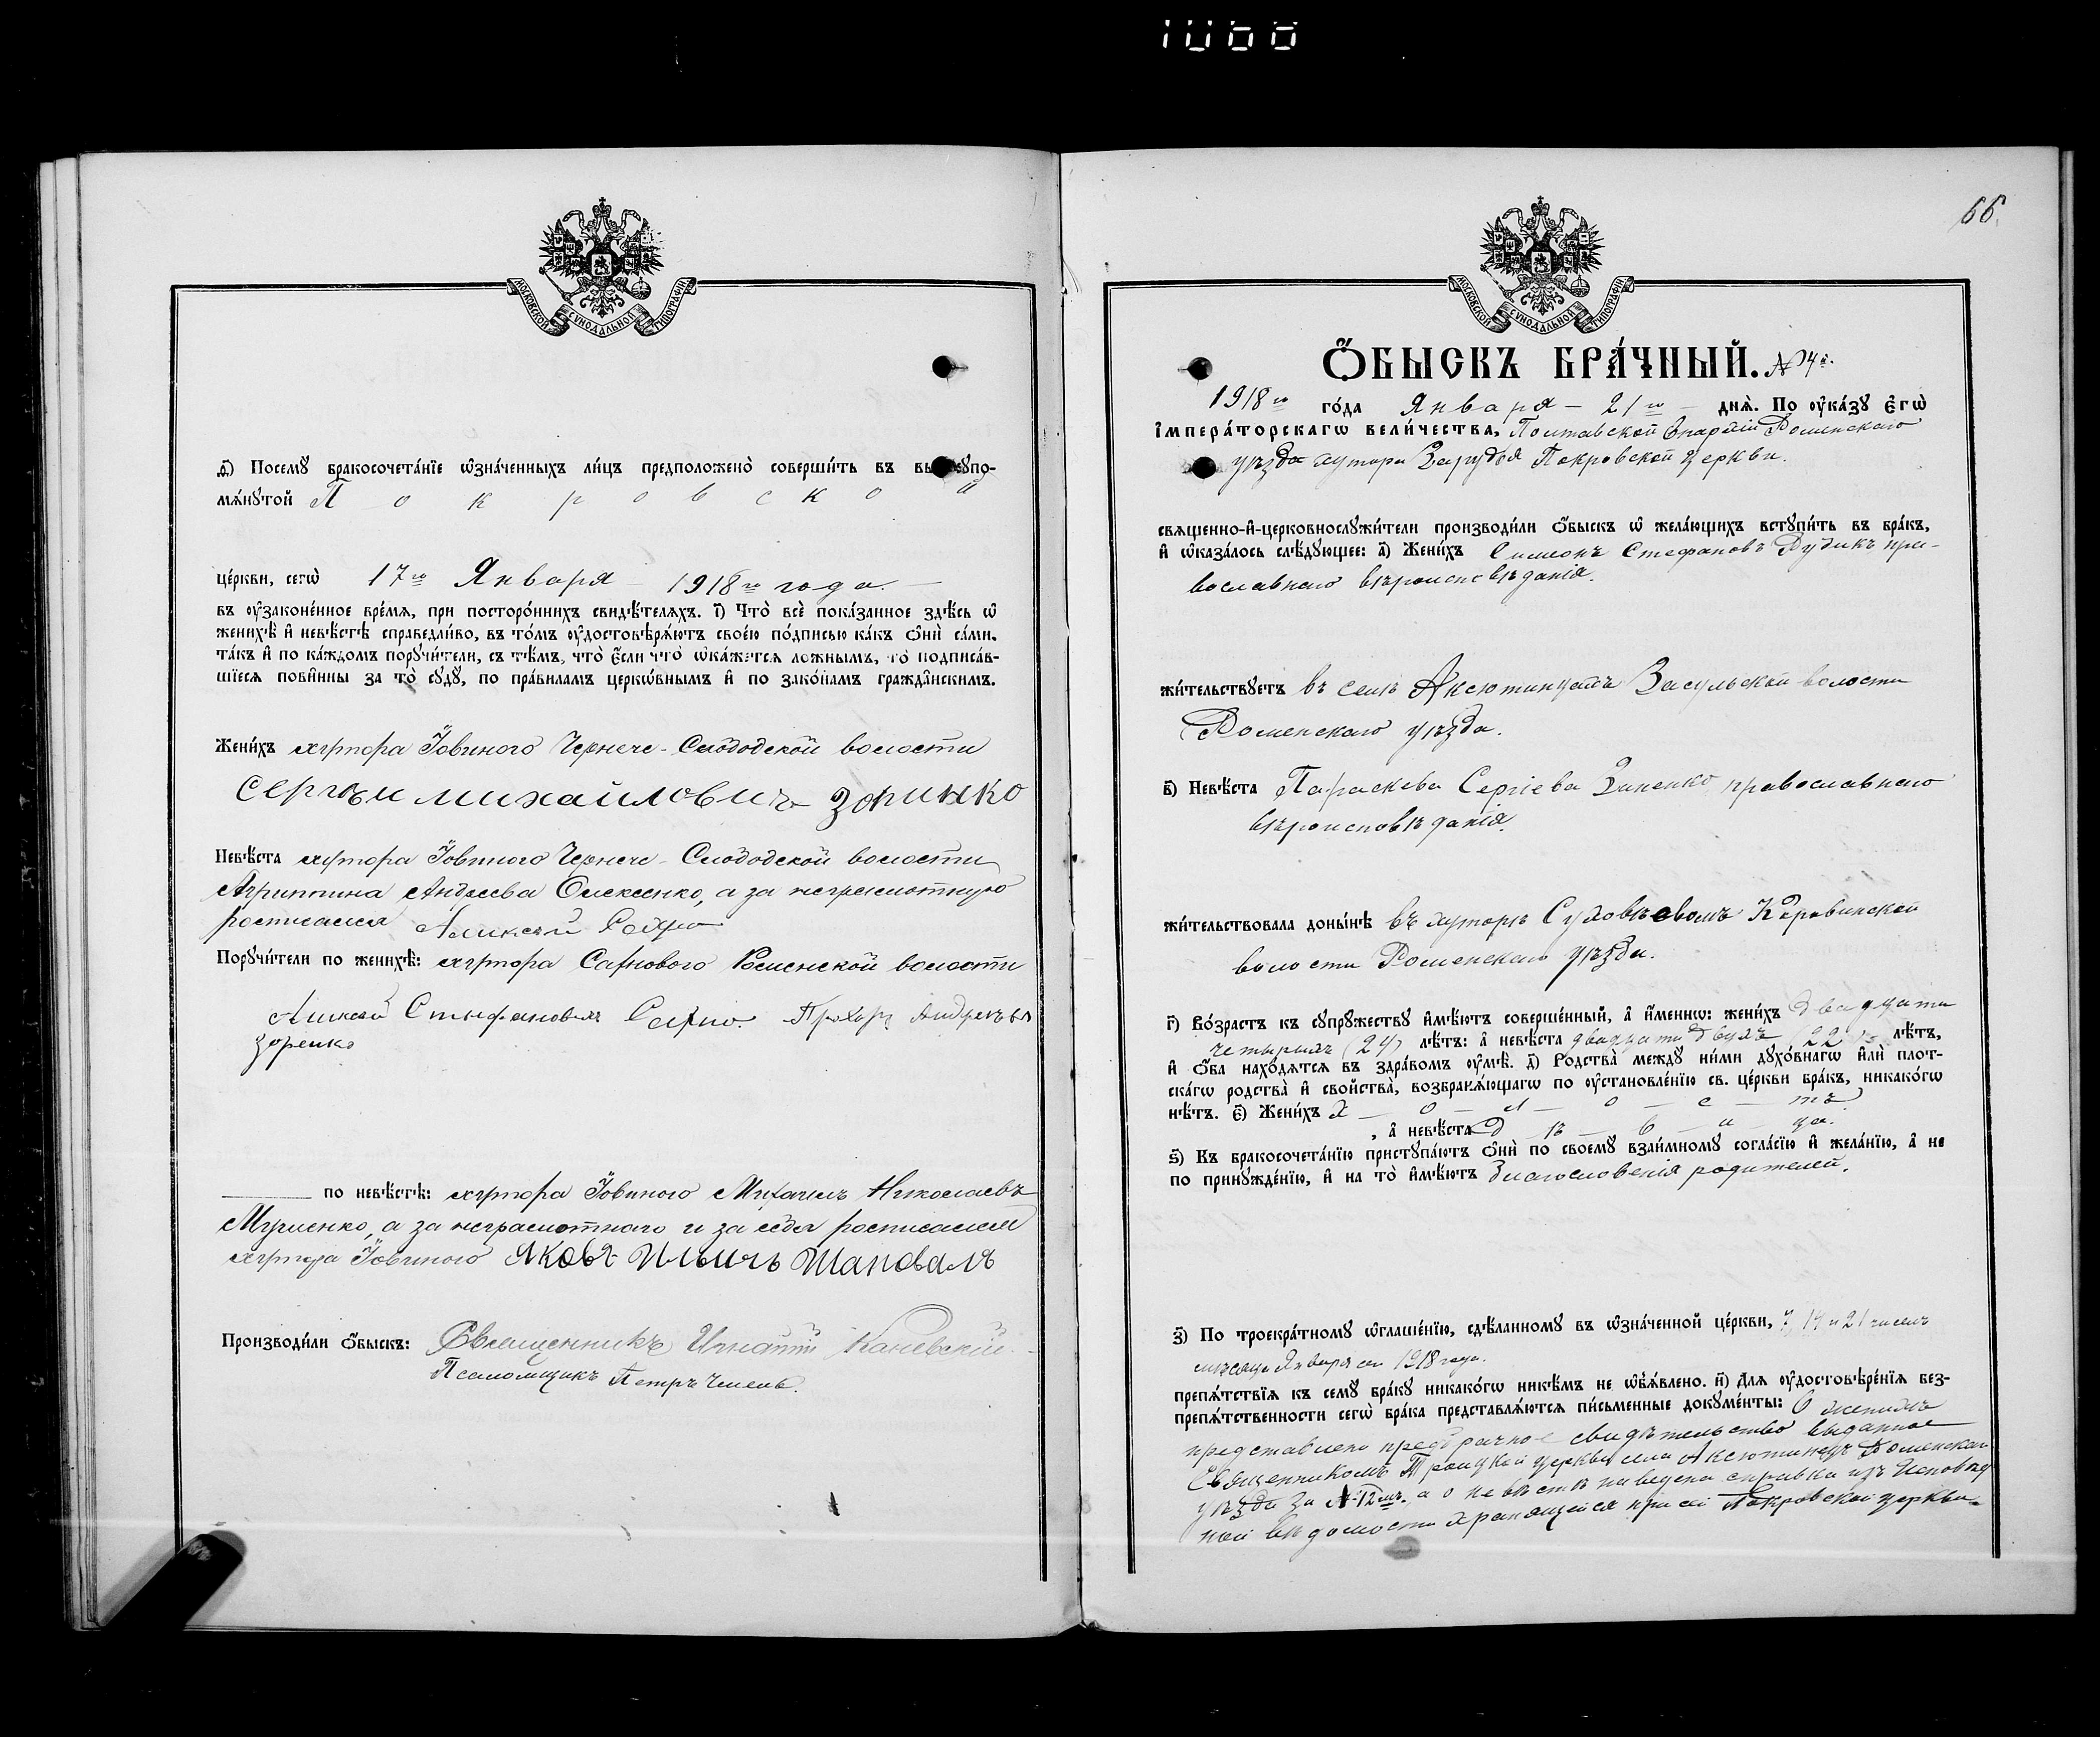 1068
МОСКОВСКОЙ СѴНОДАЛЬНОЙ ТИПОГРАФІИ
ѳ҃) Посемꙋ бракосочета́нїе ѡ҆зна́ченныхъ ли́цъ предположено̀ соверши́ть въ вы
мѧ́нꙋтой Покровской
це́ркви, сегѡ̀ 17го Января 1918го года.
въ ᲂу҆зако́ненное вре́мѧ, при посторо́ннихъ свидѣ́телѧхъ. і҃) Что̀ всѐ пока́занное здѣ́сь ѡ҆
женихѣ̀ и҆ невѣ́стѣ справедли́во, въ то́мъ ᲂу҆достовѣрѧ́ютъ свое́ю по́дписью ка́къ ѻ҆нѝ са́ми,
та́къ и҆ по ка́ждомъ порꙋчи́тели, съ тѣ́мъ, что̀ є҆́сли что̀ ѡ҆ка́жетсѧ ло́жнымъ, то̀ подписа́в-
шїесѧ пови́нны за то̀ сꙋдꙋ̀, по пра́виламъ церко́внымъ и҆ по зако́намъ гражда́нскимъ.
Жени́хъ хутора Їовиного Чернече-Слободской волости
Сергѣи михайловичъ зоринко
Невѣ́ста хутора Їовиного Чернече-Слободской волости
Агриппина Андреева Олексенко, а за неграмотную
росписался Аликсѣй
Порꙋчи́тели по женихѣ̀: хутора Роменской волости
Аликсѣй Стефановичъ Прохоръ Андреевъ
зоренко
по невѣ́стѣ: хутора Їовиного Михаилъ Николаевъ
а за неграмотнаго и за себя росписался
хутора Їовиного Яковъ Ильичъ Шаповалъ
Производи́ли ѻ҆́быскъ: Священникъ Игнатій Каневскій
Псаломщикъ Петръ
66.
МОСКОВСКОЙ СѴНОДАЛЬНОЙ ТИПОГРАФІИ
Ѻ҆́БЫСКЪ БРА́ЧНЫЙ. №4й.
1918го го́да Января — 21го — днѧ̀. По ᲂу҆ка́зꙋ є҆гѡ̀
і҆мпера́торскагѡ вели́чества, Полтавской Епархіи Роменскаго
уѣзда хутора Зарудья Покровской церкви.
свѧщенно-и҆-церковнослꙋжи́тели производи́ли ѻ҆́быскъ ѡ҆ жела́ющихъ встꙋпи́ть въ бра́къ,
и҆ ѡ҆каза́лось слѣ́дꙋющее: а҃) Жени́хъ Симеонъ Стефановъ Дудикъ пра-
вославнаго вѣроисповѣданія.
жи́тельствꙋетъ въ селѣ Аксютинцахъ Засульской волости
Роменскаго уѣзда.
в҃) Невѣ́ста Параскева Сергіева Зиненко православнаго
вѣроисповѣданія.
жи́тельствовала доны́нѣ въ хуторѣ Коровинской
волости Роменскаго уѣзда.
г҃) Во́зрастъ къ сꙋпрꙋ́жествꙋ и҆мѣ́ютъ соверше́нный, а҆ и҆́меннѡ: жени́хъ двадцати
четырехъ (24) лѣ́тъ: а҆ невѣ́ста двадцати двухъ (22) лѣ́тъ,
и҆ ѻ҆́ба нахо́дѧтсѧ въ здра́вомъ ᲂу҆мѣ̀. д҃) Родства̀ междꙋ ни́ми дꙋхо́внагѡ и҆лѝ плот-
скагѡ родства̀ и҆ сво́йства, возбранѧ́ющагѡ по ᲂу҆становле́нїю св. це́ркви бра́къ, никако́гѡ
нѣ́тъ. є҃) Жени́хъ Холостъ
, а҆ невѣ́ста дѣвица.
ѕ҃) Къ бракосочета́нїю пристꙋпа́ютъ ѻ҆нѝ по своемꙋ̀ взаи́мномꙋ согла́сїю и҆ жела́нїю, а҆ не
по принꙋжде́нїю, и҆ на то̀ и҆мѣ́ютъ благословенія родителей.
з҃) По троекра́тномꙋ ѡ҆глаше́нїю, сдѣ́ланномꙋ въ ѡ҆зна́ченной це́ркви, 7, 14 и 21 чиселъ
мѣсяца Января 1918 года.
препѧ́тствїѧ къ семꙋ̀ бра́кꙋ никако́гѡ никѣ́мъ не ѡ҆б̾ѧ́влено. и҃) Длѧ ᲂу҆достовѣре́нїѧ без-
препѧ́тственности сегѡ̀ бра́ка представлѧ́ютсѧ пи́сьменные докꙋме́нты: О женихѣ
представлено предбрачное свидѣтельство выданное
Священникомъ Троицкой церкви села Аксютинецъ Роменскаго
уѣзда за №12мъ, а о невѣстѣ наведена справка изъ Исповѣд
ной вѣдомости хранящейся при сей Покровской церкви.